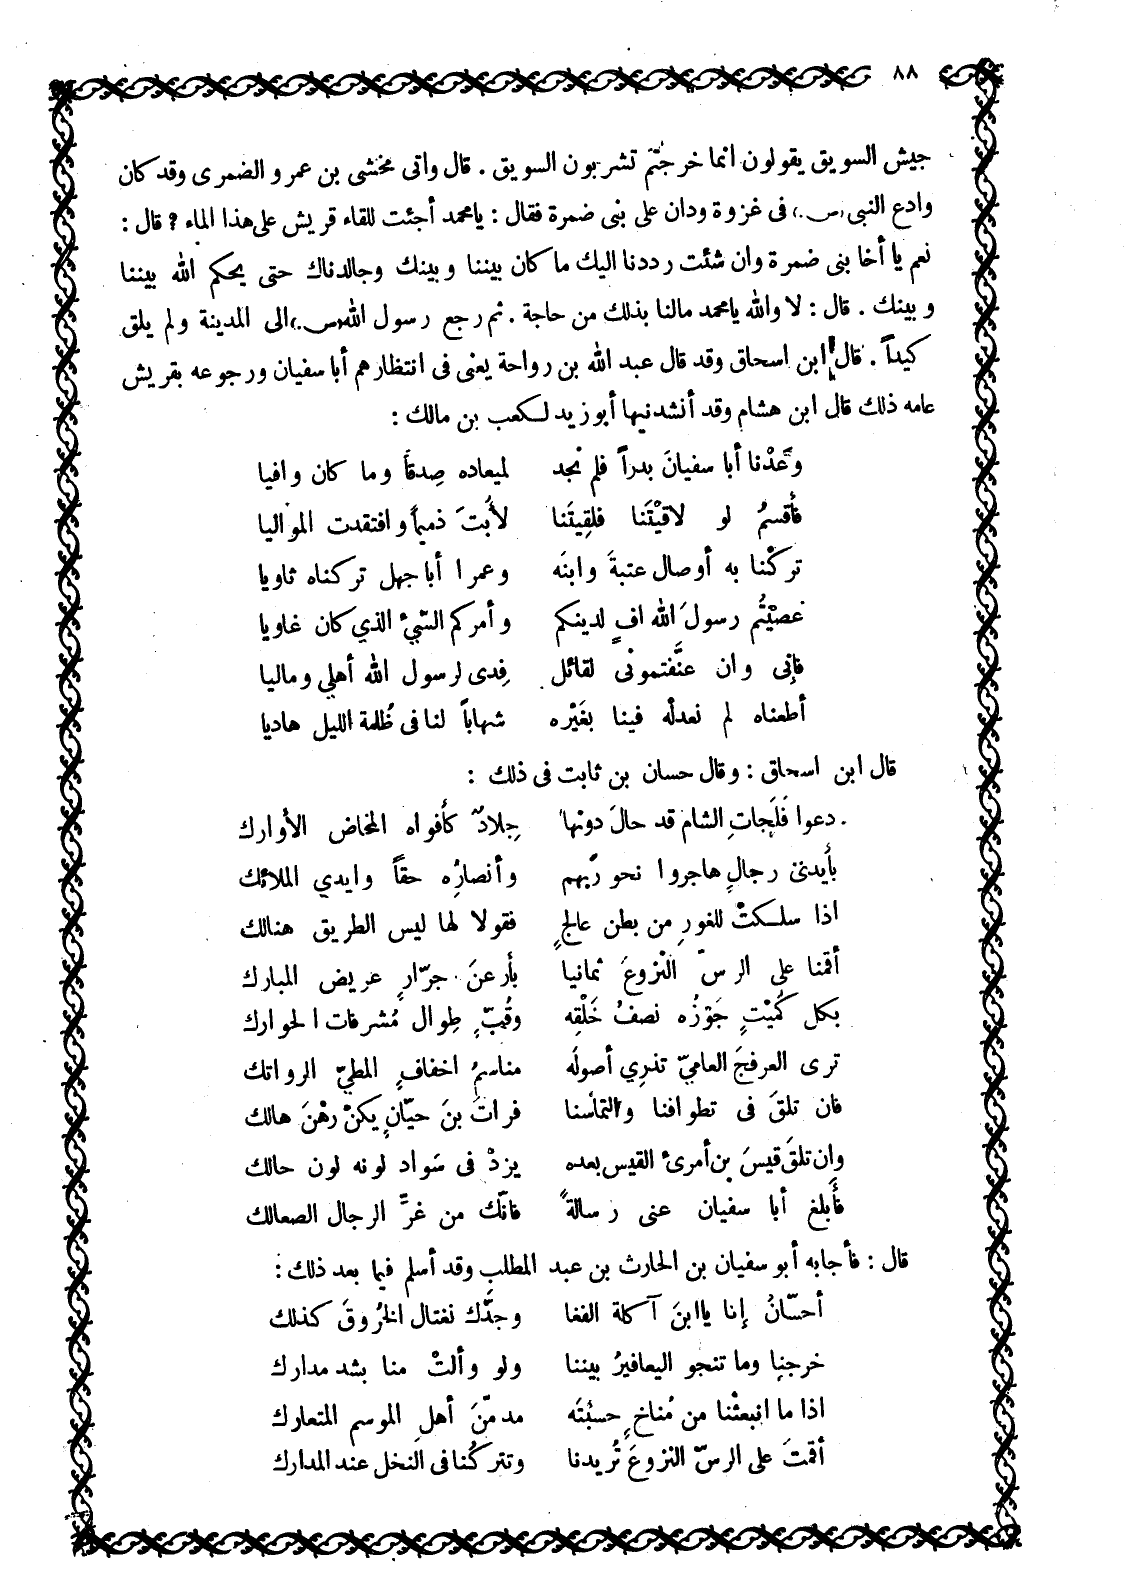 ٨٨
جيش السويق يقولون انما خرجتم تشربون السويق . قال واتى مخشى بن عمرو الضمرى وقد كان
وادع النبى (س) فى غزوة ودان على بنى ضمرة فقال : يا محمد أجئت للقاء قريش على هذا الماء ؟ قال :
نعم يا أخا بنى ضمرة وان شئت رددنا اليك ما كان بيننا وبينك وجالدناك حتى يحكم الله بيننا
وبينك . قال : لا والله يا محمد مالنا بذلك من حاجة . ثم رجع رسول الله (س) الى المدينة ولم يلق
كيداً . قال ابن اسحاق وقد قال عبد الله بن رواحة يعنى فى انتظارهم أبا سفيان ورجوعه بقريش
عامه ذلك قال ابن هشام وقد أنشدنيها أبو زيد لكعب بن مالك :
وَعَدْنا أبا سفيانَ بدراً فلم نجد لميعاده صِدقاً وما كان وافيا
فأقسمُ لو لاقيْتَنا فلقِيتَنا لأُبتَ ذميماً وافتقدت المواليا
تركْنا به أوصال عتبةَ وابنَه وعمرا أبا جهل تركناه ثاويا
عصيْتُم رسولَ الله افٍ لدينكم وأمركم السّيءُ الذي كان غاويا
فإنى وان عنَّفتمونى لقائل فِدى لرسول الله أهلي وماليا
أطعناه لم نعدلْه فينا بغَيْره شهاباً لنا فى ظُلمة الليل هاديا
قال ابن اسحاق : وقال حسان بن ثابت فى ذلك :
دعوا فَلَجاتِ الشام قد حالَ دونها جِلادٌ كأفواه المخاض الأوارك
بأيدى رجالٍ هاجروا نحو ربّهم وأنصارُه حقاً وايدي الملائك
اذا سلكتْ للغورِ من بطن عالجٍ فقولا لها ليس الطريق هنالك
أقمنا على الرسّ النزوعَ ثمانيا بأرعنَ جرّارٍ عريض المبارك
بكل كُميْتٍ جَوْزُه نصفُ خَلْقِه وقُبّ طِوال مُشرفات الحوارك
ترى العرفجَ العاميّ تذرِي أصولَه مناسمُ اخفافِ المطيّ الرواتك
فان تلقَ فى تطوافنا والتماسنا فراتَ بنَ حيّانٍ يكنْ رهْنَ هالك
وان تلقَ قيسَ بن أمرىء القيس بعده يزدْ فى سَواد لونه لون حالك
فأَبلغ أبا سفيان عنى رسالةً فانّك من غرِّ الرجال الصعالك
قال : فأجابه أبو سفيان بن الحارث بن عبد المطلب وقد أسلم فيما بعد ذلك :
أحسّانُ إنا يا ابنَ آكلة الفغا وجدّك نغتال الخُروقَ كذلك
خرجنا وما تنجو اليعافيرُ بيننا ولو وألتْ منا بشد مدارك
اذا ما انبعثْنا من مُناخٍ حسبْتَه مدمّنَ أهلِ الموسم المتعارك
أقمتَ على الرسّ النزوعَ تُريدنا وتتركُنا فى النخل عند المدارك